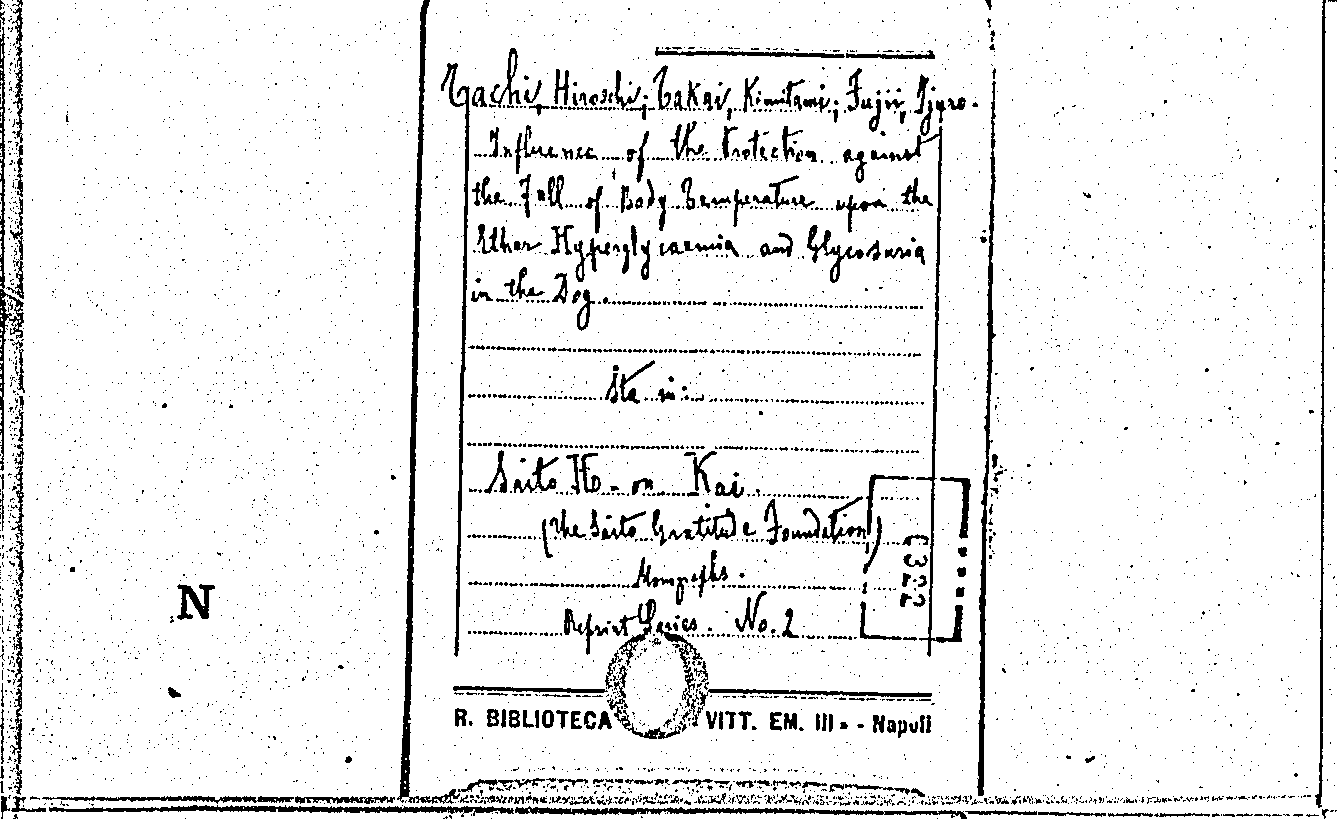 Tachi, Hiroschi; Takai, Kimitami; Fujii, Ijuro.
Influence of the Protection against
the Fall of Body Temperature upon the
Ether Hyperglycaemia and Glycosuria
in the Dog.
Sta in:
Saito Ho-on Kai.
(The Saito Gratitude Foundation)
Monographs.
Reprint Series. No. 2
N
R. BIBLIOTECA VITT. EM. III - - Napoli